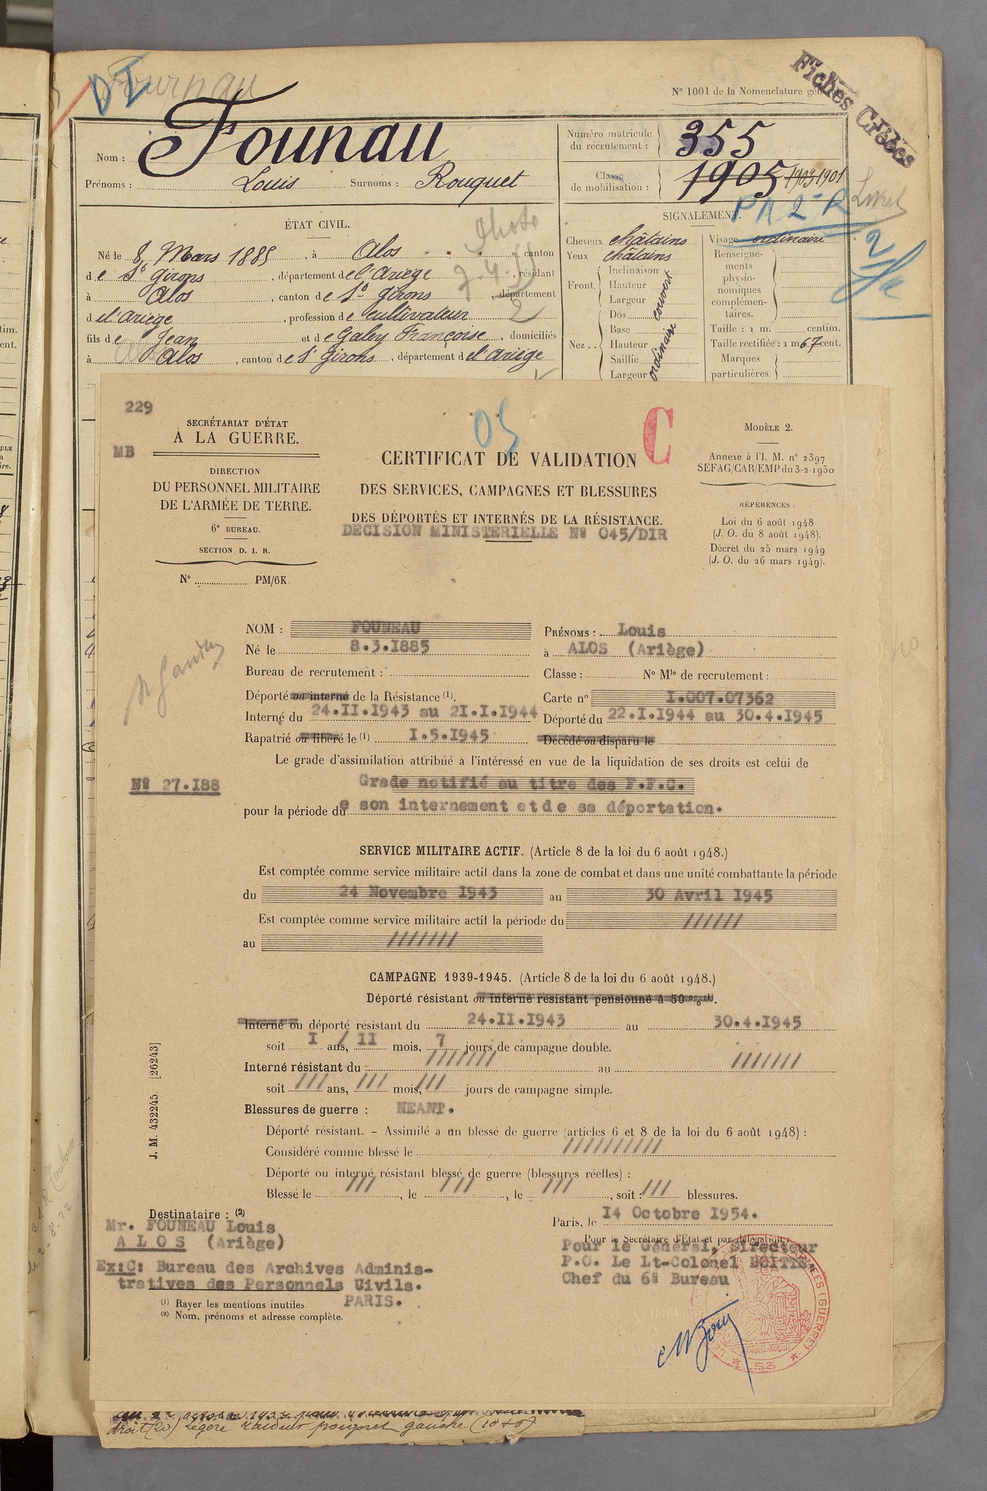 DI
Fournau
N° 1001 de la Nomenclature
Fiches Créées
Nom : Founau
Prénoms : Louis Surnoms : Rouquet
Numéro matricule du recrutement : 355
Classe de mobilisation : 1905 1903 1901
PA 2e R
ÉTAT CIVIL.
Né le 8 Mars 1885, à Alos canton
de St Girons, département de l'Ariège, résidant
à Alos, canton de St Girons, département
d el'Ariège, profession de cultivateur
fils de Jean et de Galey Françoise, domiciliés
à Alos, canton de St Girons, département d el'Ariège
Photo
SIGNALEMENT
Cheveux châtains
Yeux châtains
Front. Inclinaison
Hauteur
Largeur
couvert
Nez .. Dos
Base
Hauteur
Saillie
Largeur
ordinaire
Visage ordinaire
Renseignements physionomiques complémentaires.
Taille : 1 m. centim.
Taille rectifiée : 1 m 67 cent.
Marques particulières.
229
MB
SECRÉTARIAT D'ÉTAT
A LA GUERRE.
DIRECTION
DU PERSONNEL MILITAIRE
DE L'ARMÉE DE TERRE.
6e BUREAU.
SECTION D. I. R.
N° PM/6K
05
C
CERTIFICAT DE VALIDATION
DES SERVICES, CAMPAGNES ET BLESSURES
DES DÉPORTÉS ET INTERNÉS DE LA RÉSISTANCE.
DECISION MINISTERIELLE N° 045/DIR
MODÈLE 2.
Annexe à l'I. M. n° 2397
SEFAG/CAB/EMP du 3-2-1950
RÉFÉRENCES :
Loi du 6 août 1948
(J. O. du 8 août 1948).
Décret du 25 mars 1949
(J. O. du 26 mars 1949).
NOM : FOUNEAU PRÉNOMS : Louis
Né le 8.3.1885 à ALOS (Ariège)
Bureau de recrutement : Classe : N° Mle de recrutement :
Déporté ou interné de la Résistance (1) Carte n° I.007.07362
Interné du 24.II.1943 au 2I.I.1944 Déporté du 22.I.1944 au 30.4.1945
Rapatrié ou libéré le (1) I.5.I945 Décédé ou disparu le
Le grade d'assimilation attribué à l'intéressé en vue de la liquidation de ses droits est celui de
N° 27.188 Grade notifié au titre des F.F.C.
pour la période du e son internement et de sa déportation.
SERVICE MILITAIRE ACTIF. (Article 8 de la loi du 6 août 1948.)
Est comptée comme service militaire actif dans la zone de combat et dans une unité combattante la période
du 24 Novembre I943 au 30 Avril I945
Est comptée comme service militaire actif la période du //////
au ///////
CAMPAGNE 1939-1945. (Article 8 de la loi du 6 août 1948.)
Déporté résistant ou interné résistant pensionné à 50 % (1).
Interné ou déporté résistant du 24.II.I943 au 30.4.I945
soit I ans, / 11 mois, 7 jours de campagne double.
Interné résistant du : /////// au ///////
soit /// ans, /// mois, /// jours de campagne simple.
Blessures de guerre : NEANT.
Déporté résistant. – Assimilé à un blessé de guerre (articles 6 et 8 de la loi du 6 août 1948) :
Considéré comme blessé le //////////
Déporté ou interné résistant blessé de guerre (blessures réelles) :
Blessé le ///, le ///, le ///, soit : /// blessures.
J. M. 432245 [26243]
Destinataire : (2)
Mr. FOUNEAU Louis
ALOS (Ariège)
Ex:C: Bureau des Archives Adminis-
tratives des Personnels Civils.
PARIS.
(1) Rayer les mentions inutiles
(2) Nom, prénoms et adresse complète.
Paris, le 14 Octobre I954.
Pour le Secrétaire d'État et par délégation :
Pour le Général, Directeur
P.O. Le Lt-Colonel
Chef du 6è Bureau
droit (20) Légère raideur poignet gauche (10+5)